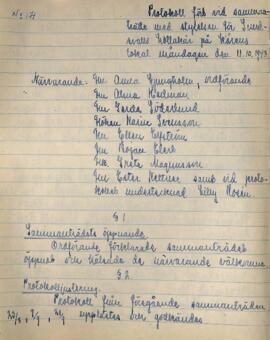 Protokoll förb vid samman-
träde med styrelsen för Sund-
svalls Lottakår på Kårens
lokal måndagen den 11.10.1943
Närvarande: Fru Anna Ljungholm, ordförande
Fru Alma Hedman
Fru Gerda Söderlund
Fröken Karin Svensson
Fru Ellen Nyström
Fru
Fru Greta Magnusson
Fru Ester samt vid proto-
kollet undertecknad Elly Rosén.
§ 1
Sammanträdets öppnande.
Ordförande förklarade sammanträdet
öppnat och hälsade de närvarande välkomna.
§ 2
Protokolljustering.
Protokoll från föregående sammanträden
upplästes och godkändes